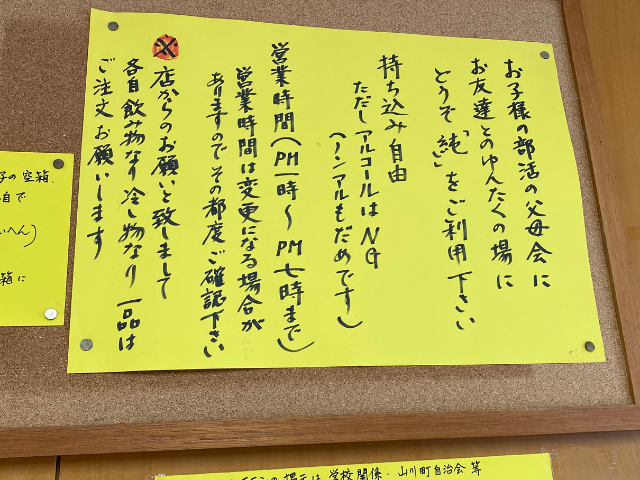 お子様の部活の父母会に
お友達とのゆんたくの場に
どうぞ「純」をご利用下さい
持ち込み自由
ただしアルコールはNG
(ノンアルもだめです)
営業時間(PM一時〜PM七時まで)
営業時間は変更になる場合が
ありますので その都度ご確認下さい
※ 店からのお願いと致しまして
各自飲み物なり冷し物なり一品は
ご注文お願いします
の空箱
自で
へん)
箱に
は 学校関係、山川町自治会等